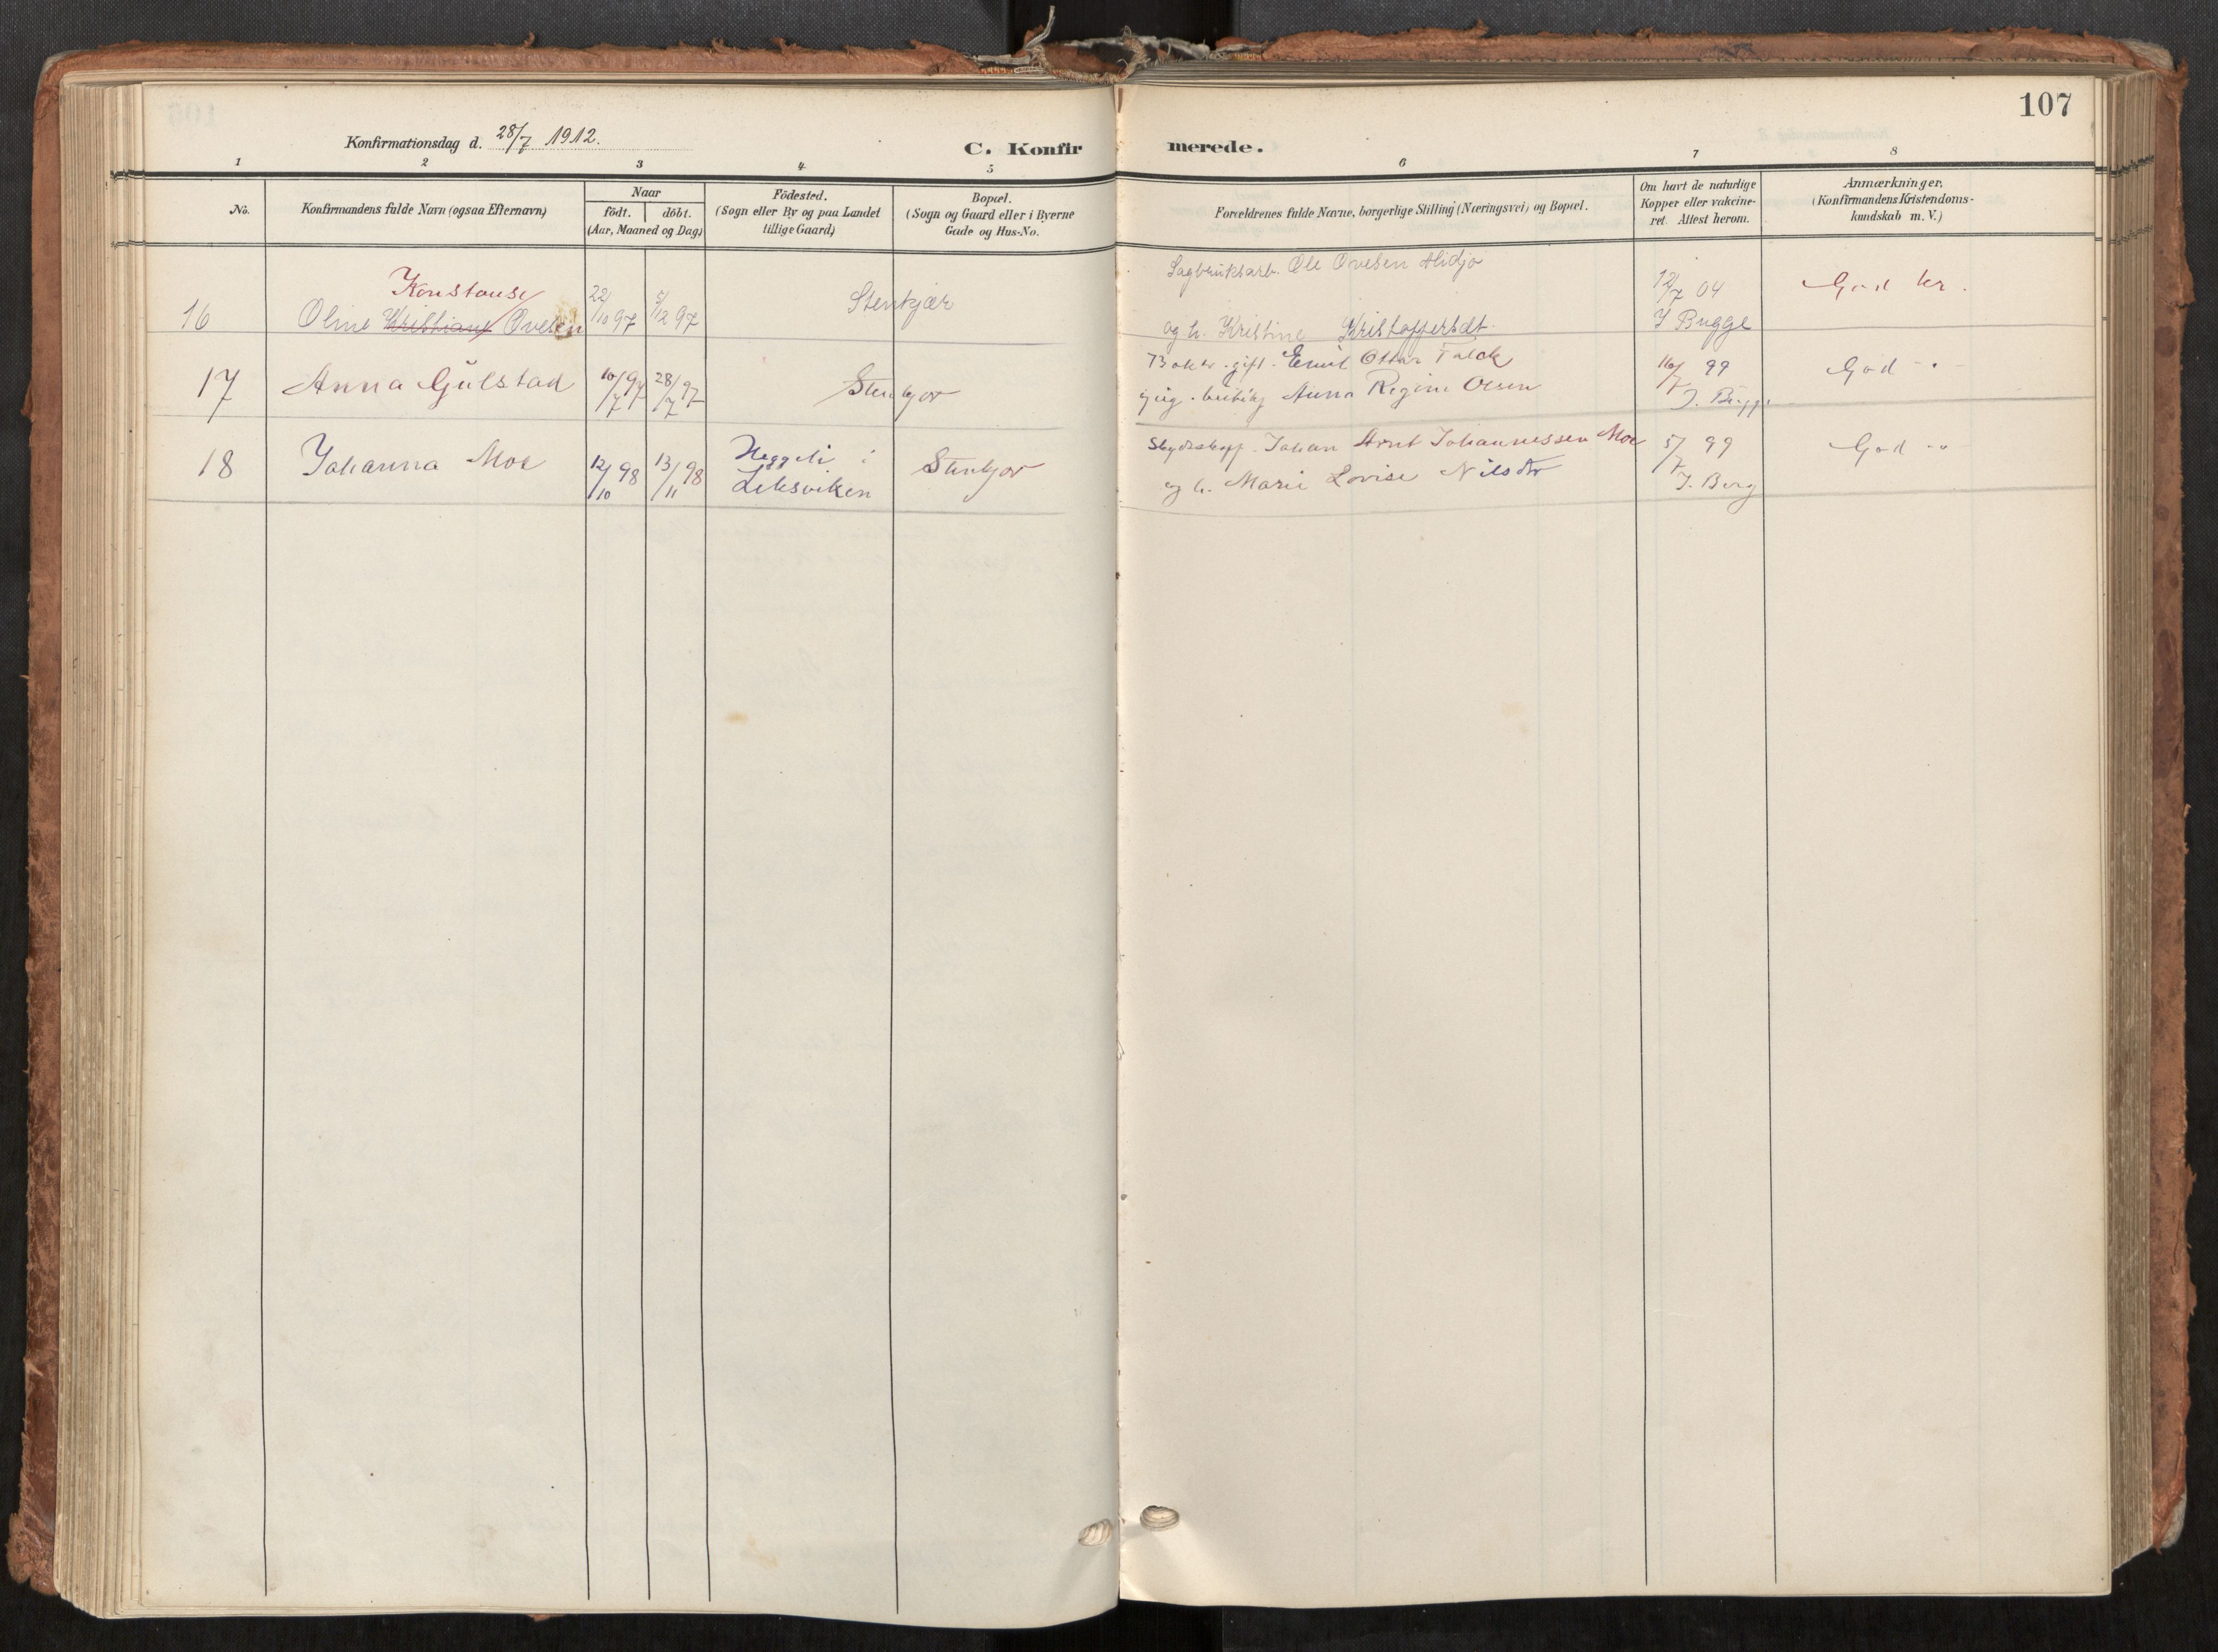 107
Konfirmationsdag d. 28/7 1912.
C. Konfirmerede.
1 2 3 4 5 6 7 8
No.
Konfirmandens fulde Navn (ogsaa Efternavn)
Naar
födt. döbt.
(Aar, Maaned og Dag)
Födested.
(Sogn eller By og paa Landet
tillige Gaard)
Bopæl.
(Sogn og Gaard eller i Byerne
Gade og Hus-No.
Forældrenes fulde Navne, borgerlige Stilling (Næringsvei) og Bopæl.
Om havt de naturlige
Kopper eller vakcine-
ret. Attest herom.
Anmærkninger.
(Konfirmandens Kristendoms-
kundskab m. V.)
Konstanse
16 Oline Kristiane Ovesen 22/10 97 5/12 97 Stenkjær
Sagbruksarb. Ole Ovesen
og h. Kristine Kristoffersdt.
12/7 04
J Bugge
God kr.
17 Anna Gulstad 10/7 97 28/7 97 Stenkjær
gift. Emil Ottar Falck
Anna Regine Olsen
16/7 99
J. Bugge
God - " -
18 Johanna Moe 12/10 98 13/11 98
Heggli i
Leksviken
Stenkjær
Johan Arnt Johannessen Moe
og h. Marie Lovise Nilsdtr
5/7 99
J. Berg
God - "